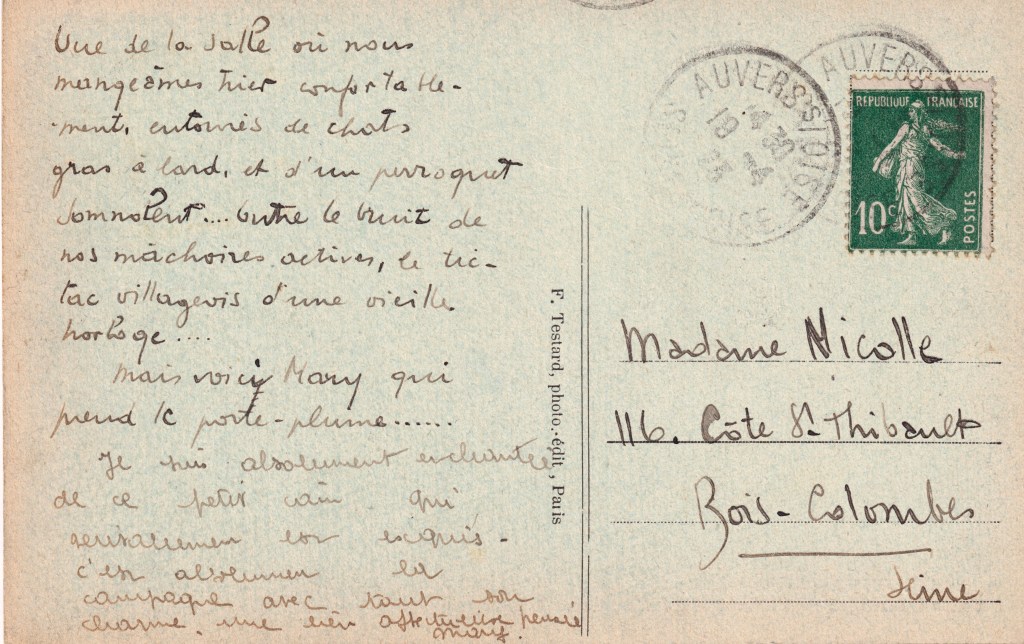 Vue de la salle où nous
mangeâmes hier confortable-
-ment, entourés de chats
gras à lard, et d'un perroquet
somnolent.... Outre le bruit de
nos mâchoires actives, le tic-
tac villageois d'une vieille
horloge....
Mais voici Mary qui
prend le porte-plume......
Je suis absolument enchantée
de ce petit coin qui
veritablement est exquis -
c'est absolumen la
campagne avec tout son
charme. une bien affectueuse pensée
Mary.
F. Testard, photo.-édit, Paris
AUVERS S/ OISE
18
AUVERS
REPUBLIQUE FRANÇAISE
10c
POSTES
Madame Nicolle
116. Côte St Thibault
Bois-Colombes
Seine